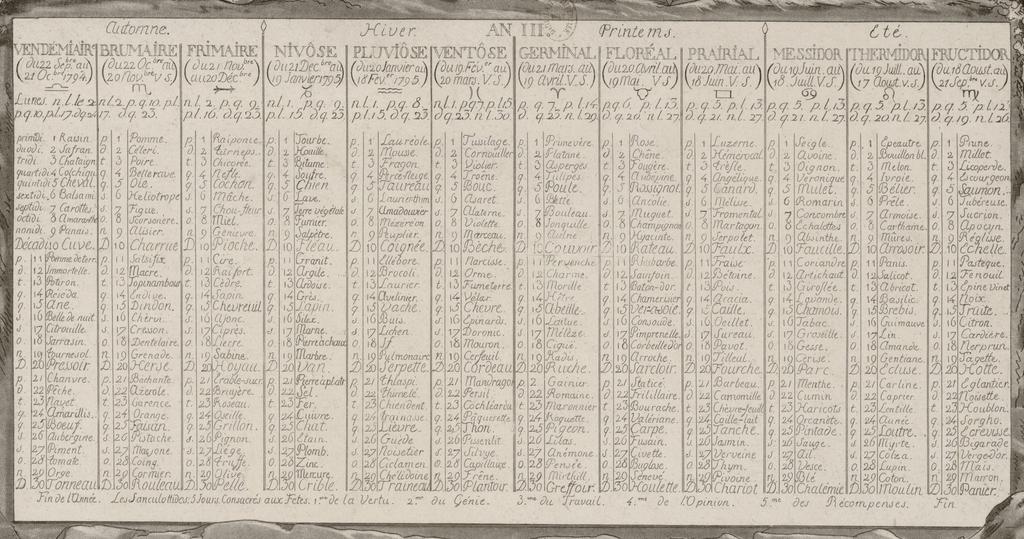 Automne. Hiver. AN III Printems. Eté.
VENDÉMIAIRE BRUMAIRE FRIMAIRE NIVÔSE PLUVIÔSE VENTÔSE GERMINAL FLORÉAL PRAIRIAL MESSIDOR THERMIDOR FRUCTIDOR
primdi. 1 Raisin p. 1 Pomme. p. 1 Raiponce p. 1 Tourbe. p. 1 Lauréole p. 1 Tusilage. p. 1 Primevère p. 1 Rose. p. 1 Luzerne. p. 1 Seigle. p. 1 Epeautre p. 1 Prune.
duodi. 2 Safran. d. 2 Céleri. d. 2 Turneps. d. 2 Houille. d. 2 Mousse. d. 2 Cornouiller d. 2 Platane. d. 2 Chêne. d. 2 Hémerocal. d. 2 Avoine. d. 2 Bouillon bl. d. 2 Millet.
tridi. 3 Chataign t. 3 Poire t. 3 Chicorée. t. 3 Bitume. t. 3 Fragon t. 3 Violier t. 3 Asperges t. 3 Fugère. t. 3 Trèfle. t. 3 Oignon. t. 3 Melon. t. 3 Licoperde.
quartidi 4 Colchiqu q. 4 Betterave q. 4 Nefle. q. 4 Soufre. q. 4 Perceneige q. 4 Troëne. q. 4 Tulipes. q. 4 Aubepine q. 4 Angélique q. 4 Veronique q. 4 Ivroie. q. 4 Escourgeon
quintidi 5 Cheval. q. 5 Oie. q. 5 Cochon. q. 5 Chien q. 5 Taureau q. 5 Bouc. q. 5 Poule. q. 5 Rossignol q. 5 Canard. q. 5 Mulet. q. 5 Bélier. q. 5 Saumon.
sextidi. 6 Balsami s. 6 Héliotrope s. 6 Mâche. s. 6 Lave. s. 6 Laurierthim s. 6 Asaret. s. 6 Blette s. 6 Ancolie s. 6 Mélise. s. 6 Romarin s. 6 Prêle. s. 6 Tubéreuse
septidi. 7 Carotte. s. 7 Figue. s. 7 Chou-fleur s. 7 Terre végétale s. 7 Amadouvier s. 7 Alaterne. s. 7 Bouleau s. 7 Muguet s. 7 Fromental s. 7 Concombre s. 7 Armoise. s. 7 Sucrion.
octidi. 8 Amarante o. 8 Scorsonère o. 8 Miel. o. 8 Fumier. o. 8 Mézeréon o. 8 Violette o. 8 Jonquille o. 8 Champignon o. 8 Martagon o. 8 Echalottes o. 8 Carthame o. 8 Apocyn
nonidi. 9 Panais. n. 9 Alisier n. 9 Genièvre n. 9 Salpêtre. n. 9 Peuplier n. 9 Marceau n. 9 Aulne n. 9 Hyacinte n. 9 Serpolet n. 9 Absinthe n. 9 Mûres. n. 9 Réglisse
Décadi 10 Cuve. D 10 Charrue D 10 Pioche. D. 10 Fléau. D 10 Coignée D. 10 Bêche D. 10 Couvoir D. 10 Rateau D. 10 Faulx. D 10 Faucille D. 10 Arrosoir D. 10 Echelle
p. 11 Pomme de terr. p. 11 Salsifix p. 11 Cire. p. 11 Granit. p. 11 Ellébore p. 11 Narcisse. p. 11 Pervenche p. 11 Rhubarbe. p. 11 Fraise p. 11 Coriandre p. 11 Panis. p. 11 Pastèque.
d. 12 Immortelle. d. 12 Macre. d. 12 Raifort. d. 12 Argile. d. 12 Brocoli d. 12 Orme. d. 12 Charme. d. 12 Sainfoin. d. 12 Betoine. d. 12 Artichaut d. 12 Salicot. d. 12 Fenouil
t. 13 Potiron. t. 13 Topinambour t. 13 Cèdre. t. 13 Ardoise. t. 13 Laurier t. 13 Fumeterre t. 13 Morille t. 13 Baton-dor. t. 13 Pois. t. 13 Giroflée t. 13 Abricot. t. 13 Epine vinet
q. 14 Réséda q. 14 Endive. q. 14 Sapin q. 14 Grès. q. 14 Avelinier q. 14 Vélar q. 14 Hêtre q. 14 Chamerisier q. 14 Acacia. q. 14 Lavande. q. 14 Basilic. q. 14 Noix
q. 15 Ane. q. 15 Dindon. q. 15 Chevreuil q. 15 Lapin q. 15 Vache q. 15 Chèvre q. 15 Abeille. q. 15 Ver-à-soie q. 15 Caille. q. 15 Chamois. q. 15 Brebis. q. 15 Truite.
s. 16 Belle de nuit s. 16 Chervi. s. 16 Ajonc. s. 16 Silex. s. 16 Buis. s. 16 Epinards. s. 16 Laitue. s. 16 Consoude s. 16 Oeillet. s. 16 Tabac. s. 16 Guimauve s. 16 Citron.
s. 17 Citrouille. s. 17 Cresson. s. 17 Ciprès. s. 17 Marne. s. 17 Lichen s. 17 Doronic. s. 17 Mélèze. s. 17 Pimprenelle s. 17 Sureau s. 17 Groseille s. 17 Lin. s. 17 Cardière.
o. 18 Sarrasin. o. 18 Dentelaire o. 18 Lierre. o. 18 Pierre à chaux o. 18 If o. 18 Mouron. o. 18 Ciguë. o. 18 Corbeille d'or o. 18 Pavot. o. 18 Gesse. o. 18 Amande. o. 18 Nerprun.
n. 19 Tournesol. n. 19 Grenade. n. 19 Sabine. n. 19 Marbre. n. 19 Pulmonaire n. 19 Cerfeuil n. 19 Radis n. 19 Arroche. n. 19 Tilleul n. 19 Cerise. n. 19 Gentiane n. 19 Tagette.
D. 20 Pressoir D. 20 Herse. D 20 Hoyau. D 20 Van. D 20 Serpette D 20 Cordeau D 20 Ruche D 20 Sarcloir D 20 Fourche D. 20 Parc. D. 20 Ecluse D 20 Hotte.
p. 21 Chanvre. p. 21 Bachante. p. 21 Erable-sucr. p. 21 Pierre à platr p. 21 Thlaspi. p. 21 Mandragor p. 21 Gainier p. 21 Staticé p. 21 Barbeau p. 21 Menthe. p. 21 Carline. p. 21 Eglantier
d. 22 Pêche. d. 22 Azerole. d. 22 Bruyère. d. 22 Sel. d. 22 Thimelé. d. 22 Persil d. 22 Romaine d. 22 Fritillaire d. 22 Camomille d. 22 Cumin d. 22 Caprier d. 22 Noisette
t. 23 Navet t. 23 Garence. t. 23 Roseau. t. 23 Fer. t. 23 Chiendent t. 23 Cochléaria t. 23 Maronnier t. 23 Bourache. t. 23 Chèvre-feuille t. 23 Haricots t. 23 Lentille t. 23 Houblon.
q. 24 Amarillis. q. 24 Orange. q. 24 Oseille. q. 24 Cuivre. q. 24 Trainasse q. 24 Paquerette q. 24 Roquette q. 24 Valeriane. q. 24 Caille-lait q. 24 Orcanette q. 24 Aunée q. 24 Sorgho.
q. 25 Boeuf. q. 25 Faisan. q. 25 Grillon. q. 25 Chat. q. 25 Lièvre. q. 25 Thon. q. 25 Pigeon q. 25 Carpe. q. 25 Tanche q. 25 Pintade. q. 25 Loutre. q. 25 Ecrevisse
s. 26 Aubergine. s. 26 Pistache. s. 26 Pignon. s. 26 Etain. s. 26 Guède s. 26 Pissenlit s. 26 Lilas. s. 26 Fusain. s. 26 Jasmin. s. 26 Sauge. s. 26 Myrte. s. 26 Bigarade
s. 27 Piment. s. 27 Macjone. s. 27 Liège. s. 27 Plomb. s. 27 Noisetier s. 27 Silvye. s. 27 Anémone s. 27 Civette. s. 27 Verveine s. 27 Ail. s. 27 Colza. s. 27 Vergedor
o. 28 Tomate. o. 28 Coing. o. 28 Truffe. o. 28 Zinc. o. 28 Ciclamen o. 28 Capillaire o. 28 Pensée o. 28 Buglose. o. 28 Thym. o. 28 Vesce. o. 28 Lupin. o. 28 Maïs.
n. 29 Orge n. 29 Cormier. n. 29 Olive. n. 29 Mercure. n. 29 Chélidoine n. 29 Frêne. n. 29 Mirthill n. 29 Sénevé n. 29 Pivoine n. 29 Blé n. 29 Coton. n. 29 Maron.
D. 30 Tonneau D. 30 Rouleau D. 30 Pelle. D 30 Crible D 30 Traineau D 30 Plantoir D. 30 Greffoir D. 30 Houlette D 30 Chariot D. 30 Chalémie D 30 Moulin D. 30 Panier.
Fin de l'Année. Les Sanculottides: 5 Jours Consacrés aux Fêtes. 1.re de la Vertu. 2.me du Génie. 3.me du Travail. 4.me de l'Opinion. 5.me des Récompenses. Fin.